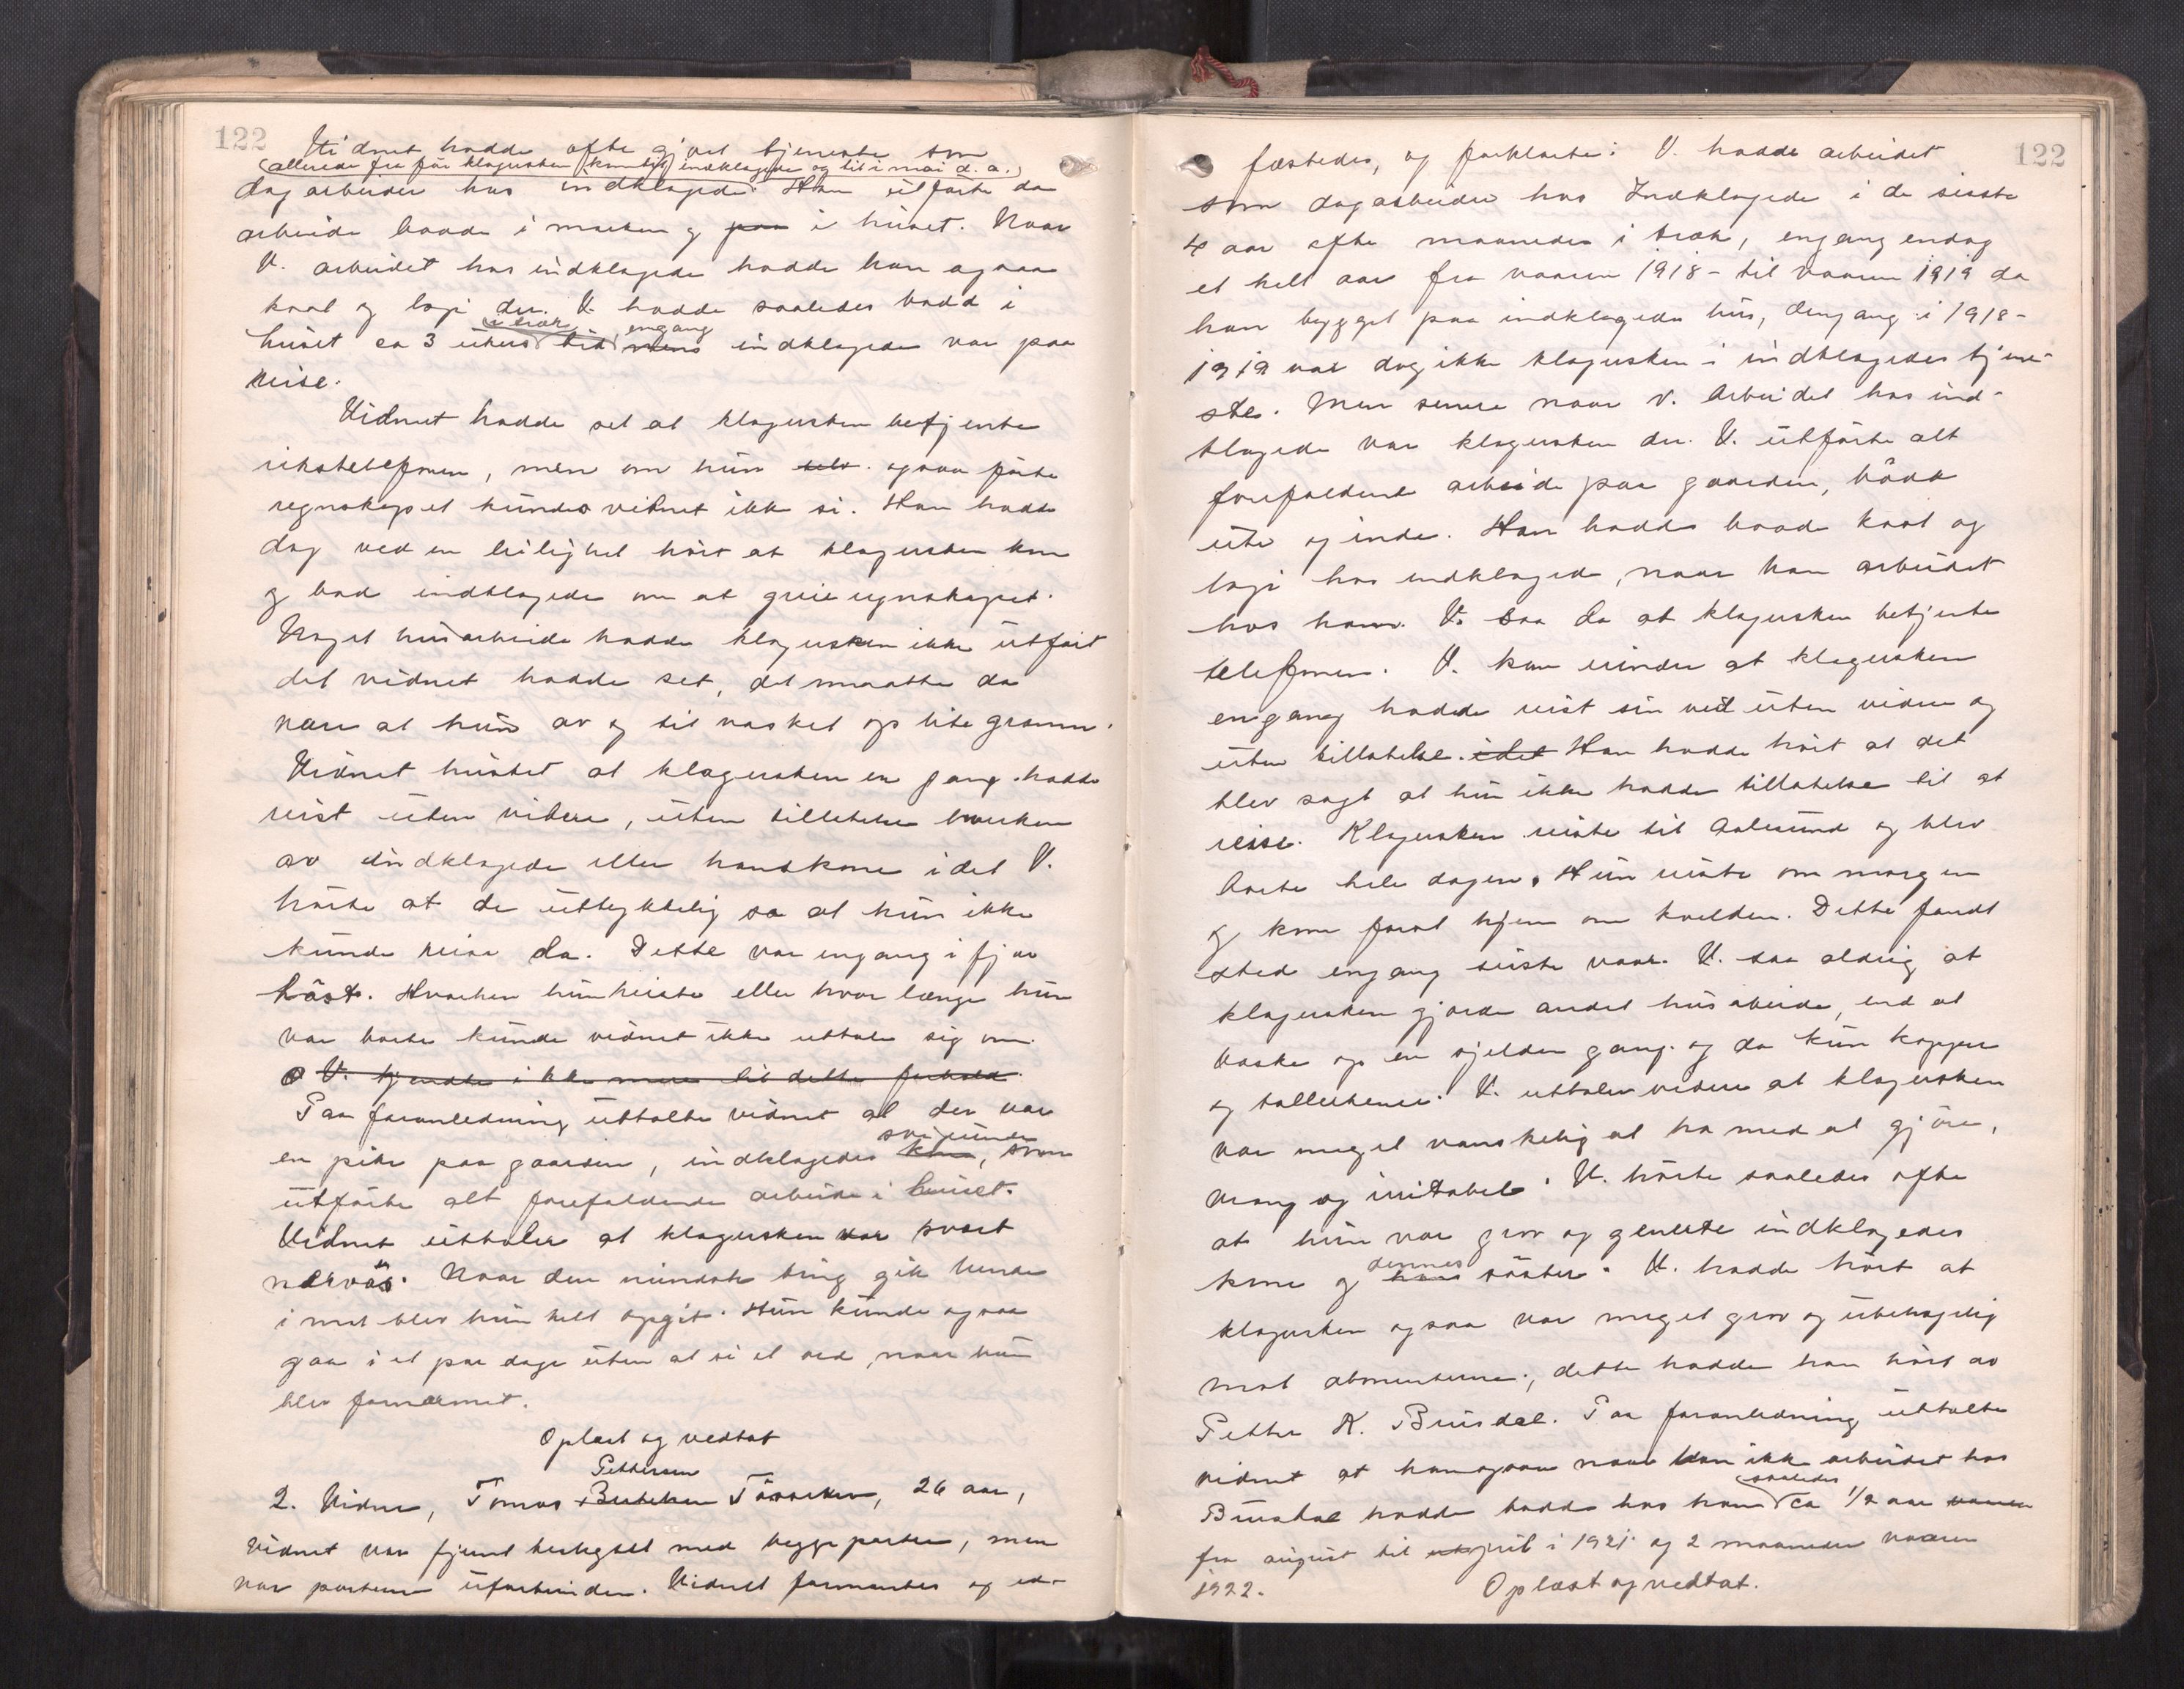 122
Vidnet hadde ofte gjort tjeneste som
(allerede fra før klagersken kom til indklagede og til i mai d. a.)
dagarbeider hos indklagede. Han utførte da
arbeide baade i marken og paa i huset. Naar
V. arbeidet hos indklagede hadde han ogsaa
kost og losji der. V. hadde saaledes bodd i
i træk engang
huset ca 3 ukers tid mens indklagede var paa
reise.
Vidnet hadde set at klagersken betjente
rikstelefonen, men om hun selv ogsaa førte
regnskapet kunde vidnet ikke si. Han hadde
dog ved en leilighet hørt at klagersken kom
og bad indklagede om at greie regnskapet.
Noget husarbeide hadde klagersken ikke utført
det vidnet hadde set, det maatte da
være at hun av og til vasket op lite grann.
Vidnet hustet at klagersken en gang hadde
reist uten videre, uten tillatelse hverken
av indklagede eller hans kone idet V.
hørte at de uttrykkelig sa at hun ikke
kunde reise da. Dette var engang i fjor
høst. Hvorhen hun reiste eller hvor længe hun
var borte kunde vidnet ikke uttale sig om.
V. kjendte ikke mere til dette forhold.
Paa foranledning uttalte vidnet at der var
svigerinde
en pike paa gaarden, indklagedes kone, som
utførte alt forefaldende arbeide i huset.
Vidnet uttaler at klagersken var svært
nærvøs. Naar den mindste ting gik hende
imot blev hun helt opgit. Hun kunde ogsaa
gaa i et par dage uten at si et ord, naar hun
blev fornærmet.
Oplæst og vedtat
Pettersen
2. Vidne, Tomas 26 aar,
Vidnet var fjernt beslegtet med begge parter, men
var parterne uforbunden. Vidnet formantes og ed-
122
fæstedes, og forklarte: V. hadde arbeidet
som dagarbeider hos Indklagede i de sisste
4 aar ofte maaneder i træk, engang endog
et helt aar fra vaaren 1918 - til vaaren 1919 da
han bygget paa indklagedes hus, dengang i 1918-
1919 var dog ikke klagersken i indklagedes tjene-
ste. Men senere naar V. arbeidet hos ind-
klagede var klagersken der. V. utførte alt
forefaldende arbeide paa gaarden, både
ute og inde. Han hadde baade kost og
losji hos indklagede, naar han arbeidet
hos ham. V. saa da at klagersken betjente
telefonen. V. kan minder at klagersken
engang hadde reist sin vei uten videre og
uten tillatelse. idet Han hadde hørt at det
blev sagt at hun ikke hadde tillatelse til at
reise. Klagersken reiste til Aalesund og blev
borte hele dagen. Hun reiste om morgen
og kom først hjem om kvelden. Dette fandt
sted engang siste vaar. V. saa aldrig at
klagersken gjorde andet husarbeide, end at
vaske op en sjelden gang og da kun kopper
og tallerkener. V. uttaler videre at klagersken
var meget vanskelig at ha med at gjøre,
vrang og irritabel. V. hørte saaledes ofte
at hun var grov og generte indklagedes
dennes
kone og hans søster. V. hadde hørt at
klagersken ogsaa var meget grov og ubehagelig
mot abonenterne, dette hadde han hørt av
Petter K. Brusdal. Paa foranledning uttalte
vidnet at han ogsaa naar han ikke arbeidet hos
saaledes
Brusdal hadde bodd hos ham ca 1/2 aar
fra august til april i 1921 og 2 maaneder vaaren
1922.
Oplæst og vedtat.